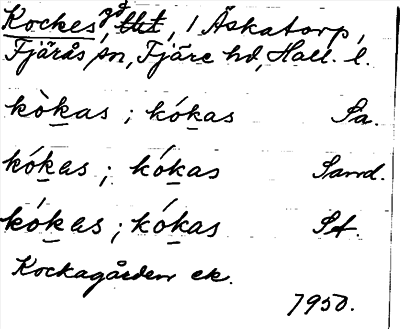 Kockes, gd, 1 Äskatorp,
Fjärås sn, Fjäre hd, Hall. l.
kòkas ; kókas Sa.
kókas ; kókas Sand.
kókas ; kókas St.
Kockagården ek.
1950.